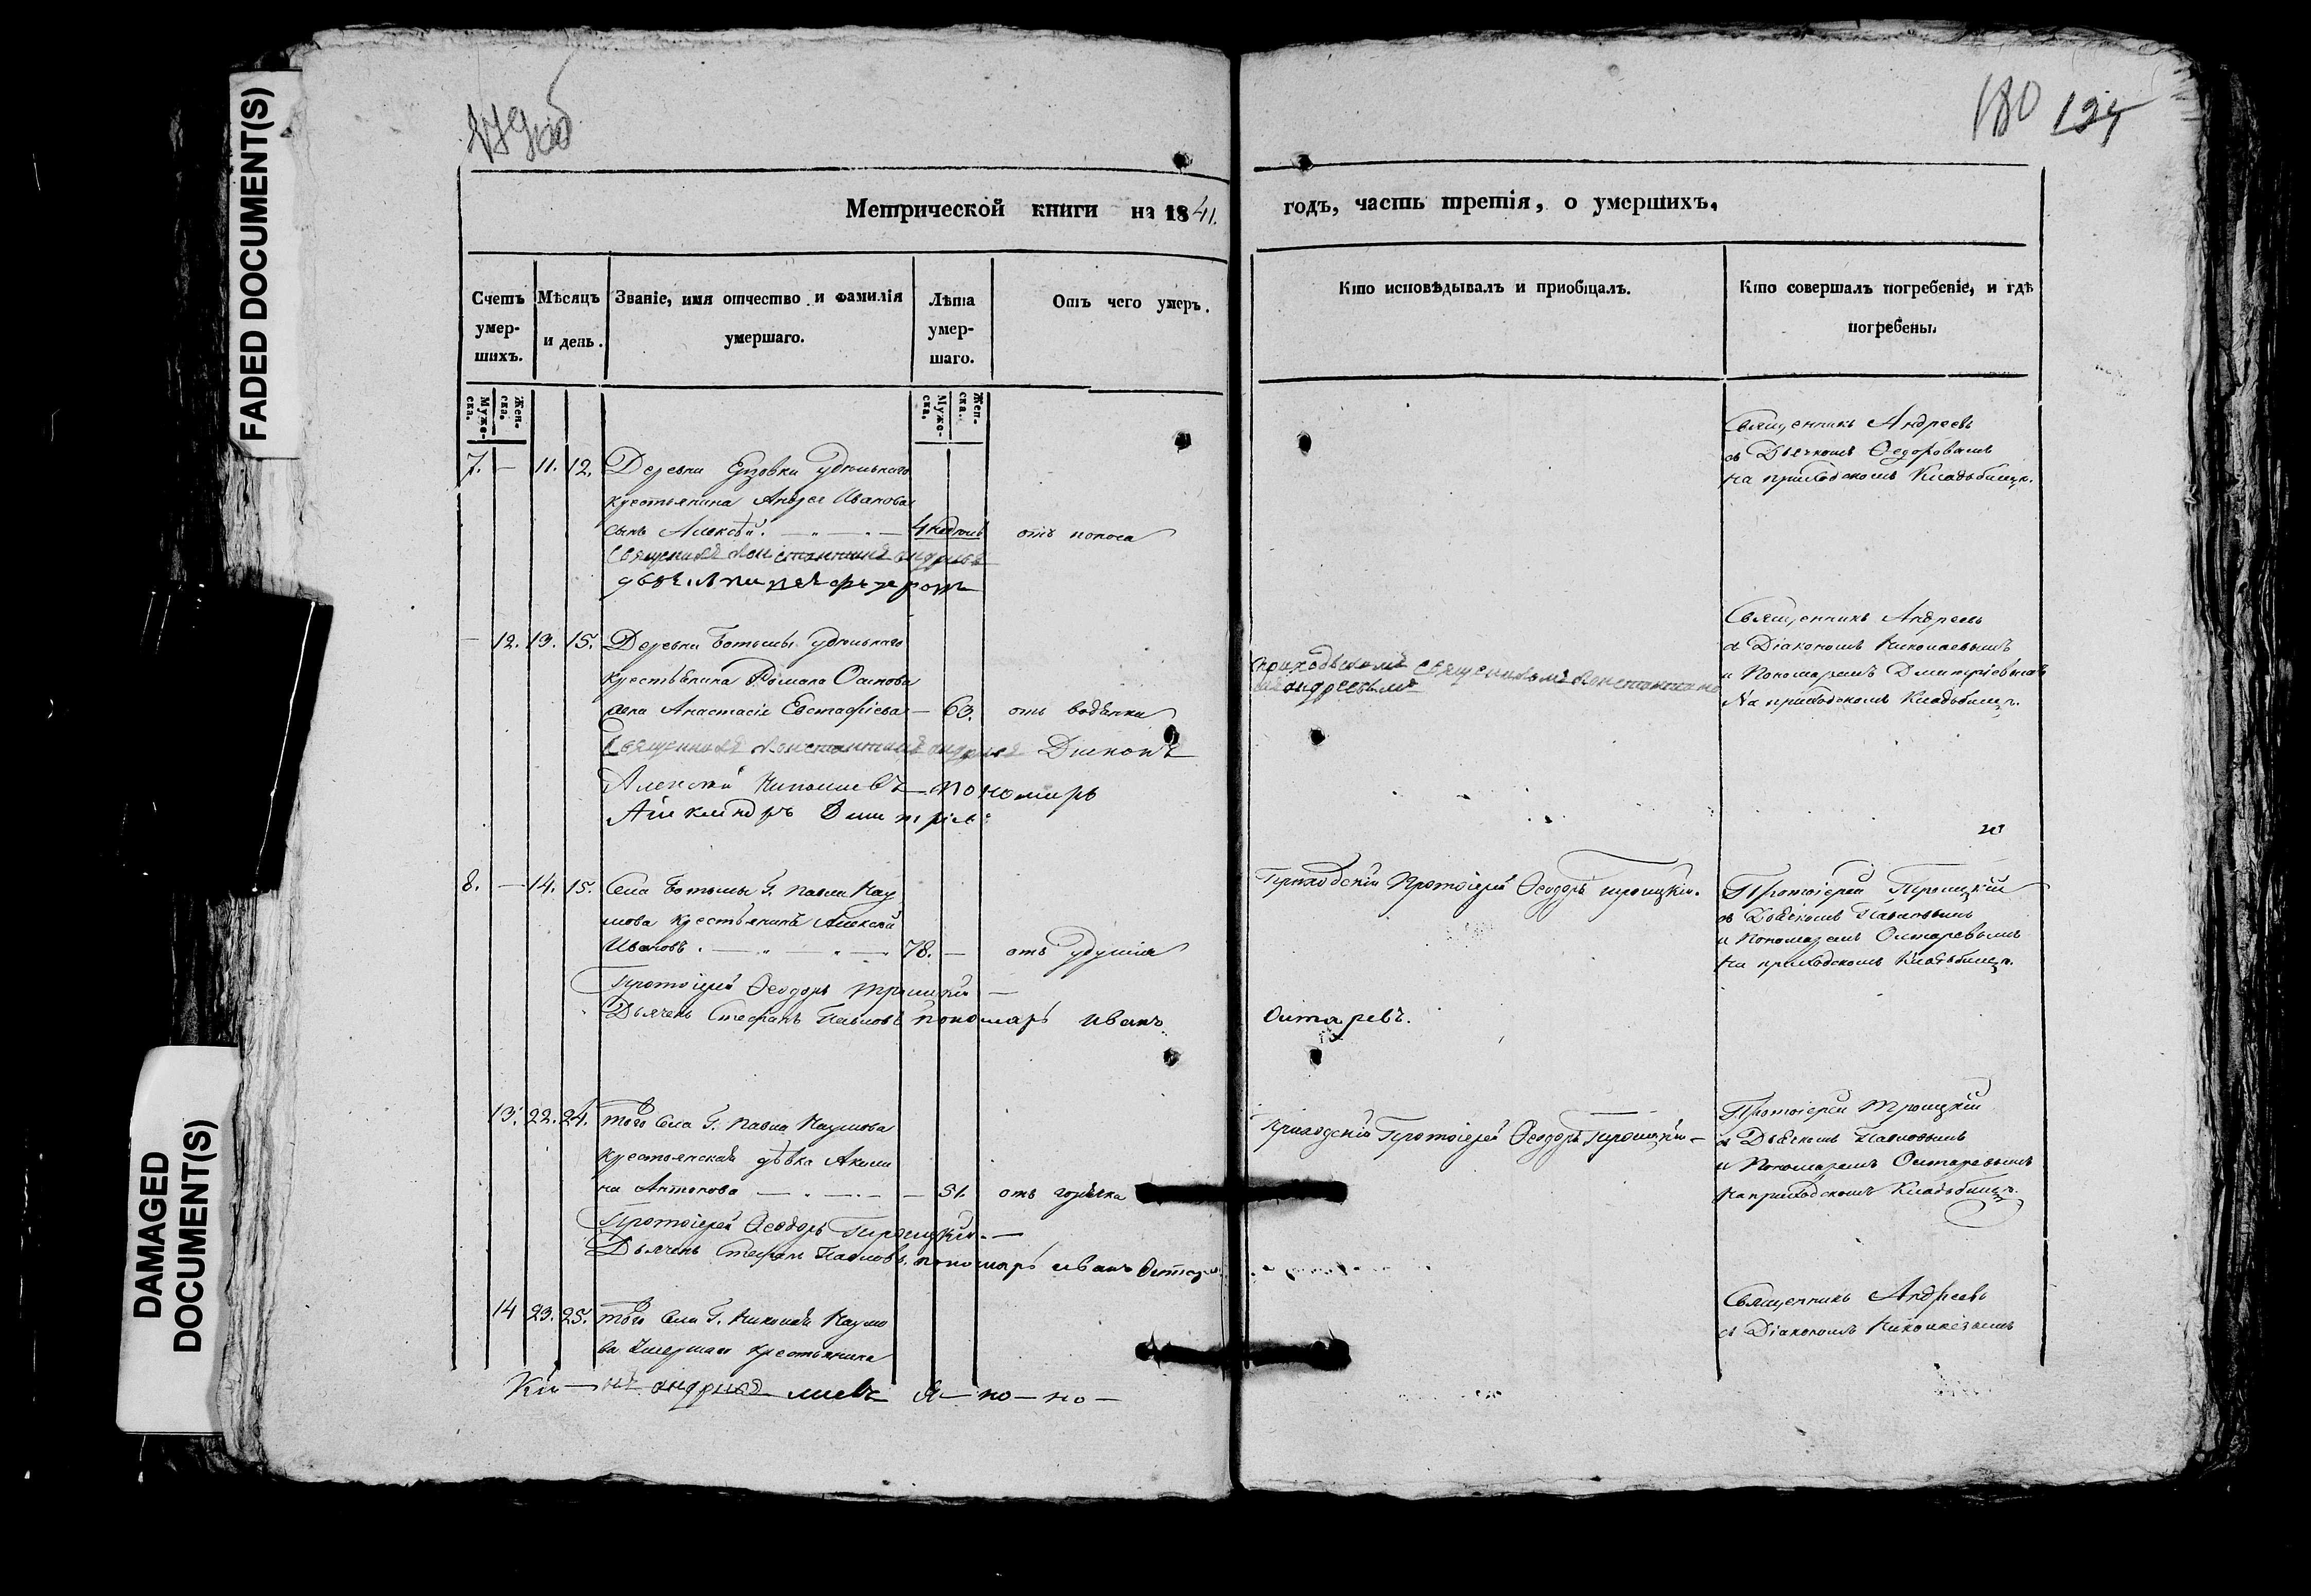 FADED DOCUMENT(S)
DAMAGED
DOCUMENT(S)
179 об
180 195
Метрической книги на 1841.
годъ, часть третія, о умершихъ.
Счетъ умер-шихъ.
Мѣсяцъ и день.
Званіе, имя отчество и фамилія умершаго.
Лѣта умер-шаго.
Отъ чего умеръ.
Кто исповѣдывалъ и пріобщалъ.
Кто совершалъ погребеніе, и гдѣ погребены.
Муже-ска. Жен-ска.
Муже-ска. Жен-ска.
7. — 11. 12. Деревни удѣльнаго
крестьянина Андрея Иванова
сынъ Алексѣй. 4 недѣль отъ поноса
Священникъ Константинъ Андреевъ
Священникъ Андреевъ
съ Дьячкомъ Ѳедоровымъ
на приходскомъ Кладбищѣ.
— 12. 13. 15. Деревни Ботьмы удѣльнаго
крестьянина Романа Осипова
жена Анастасія Евстафіева — 63. отъ водянки
Священникъ Константинъ Андреевъ Діаконъ
Алексѣй Николаевъ Пономарь
Александръ Дмитріевъ
приходскимъ священникомъ Константино
мъ андреевымъ
Священникъ Андреевъ
съ Діакономъ Николаевымъ
и Пономаремъ Дмитріевымъ
На приходскомъ Кладбищѣ.
8. — 14. 15. Села Ботьмы Г. Павла Нау
мова крестьянинъ Алексѣй
Ивановъ. 78. — отъ удушья
Протоіерей Ѳеодоръ Троицкій
Дьячекъ Стефанъ Павловъ пономарь Иванъ
Олтаревъ.
Приходскій Протоіерей Ѳеодоръ Троицкій.
Протоіерей Троицкій
съ Дьячкомъ Павловымъ
и Пономаремъ Олтаревымъ
На приходскомъ Кладбищѣ.
13. 22. 24. того села Г. Павла Наумова
крестьянская дѣвка Акили
на Антонова — 51. отъ горячка
Протоіерей Ѳеодоръ Троицкій.
Дьячекъ Стефанъ Павловъ. пономарь иванъ Олтаре
Приходскій Протоіерей Ѳеодоръ Троицкій
Протоіерей Троицкій
съ Дьячкомъ Павловымъ
и Пономаремъ Олтаревымъ
На приходскомъ Кладбищѣ.
14 23. 25. того села Г. Николая Наумо
ва умершаго крестьянина
Священникъ Андреевъ
съ Діакономъ Николаевымъ